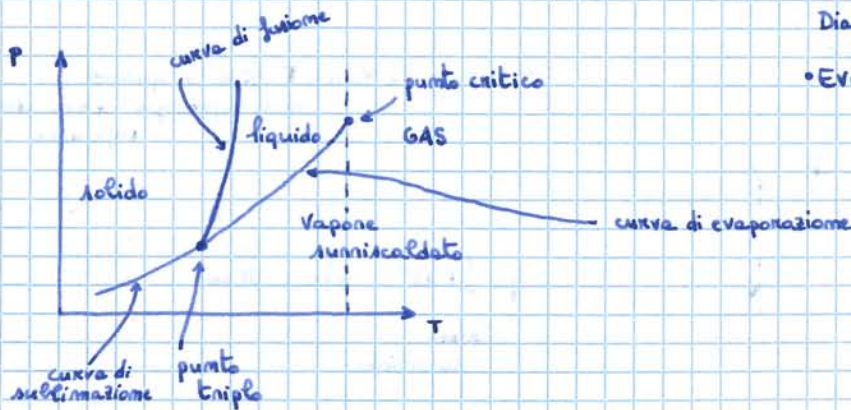 Dia
P
curva di fusione
punto critico
• Ev
liquido
GAS
solido
Vapore
surriscaldato
curva di evaporazione
T
curva di
sublimazione
punto
triplo